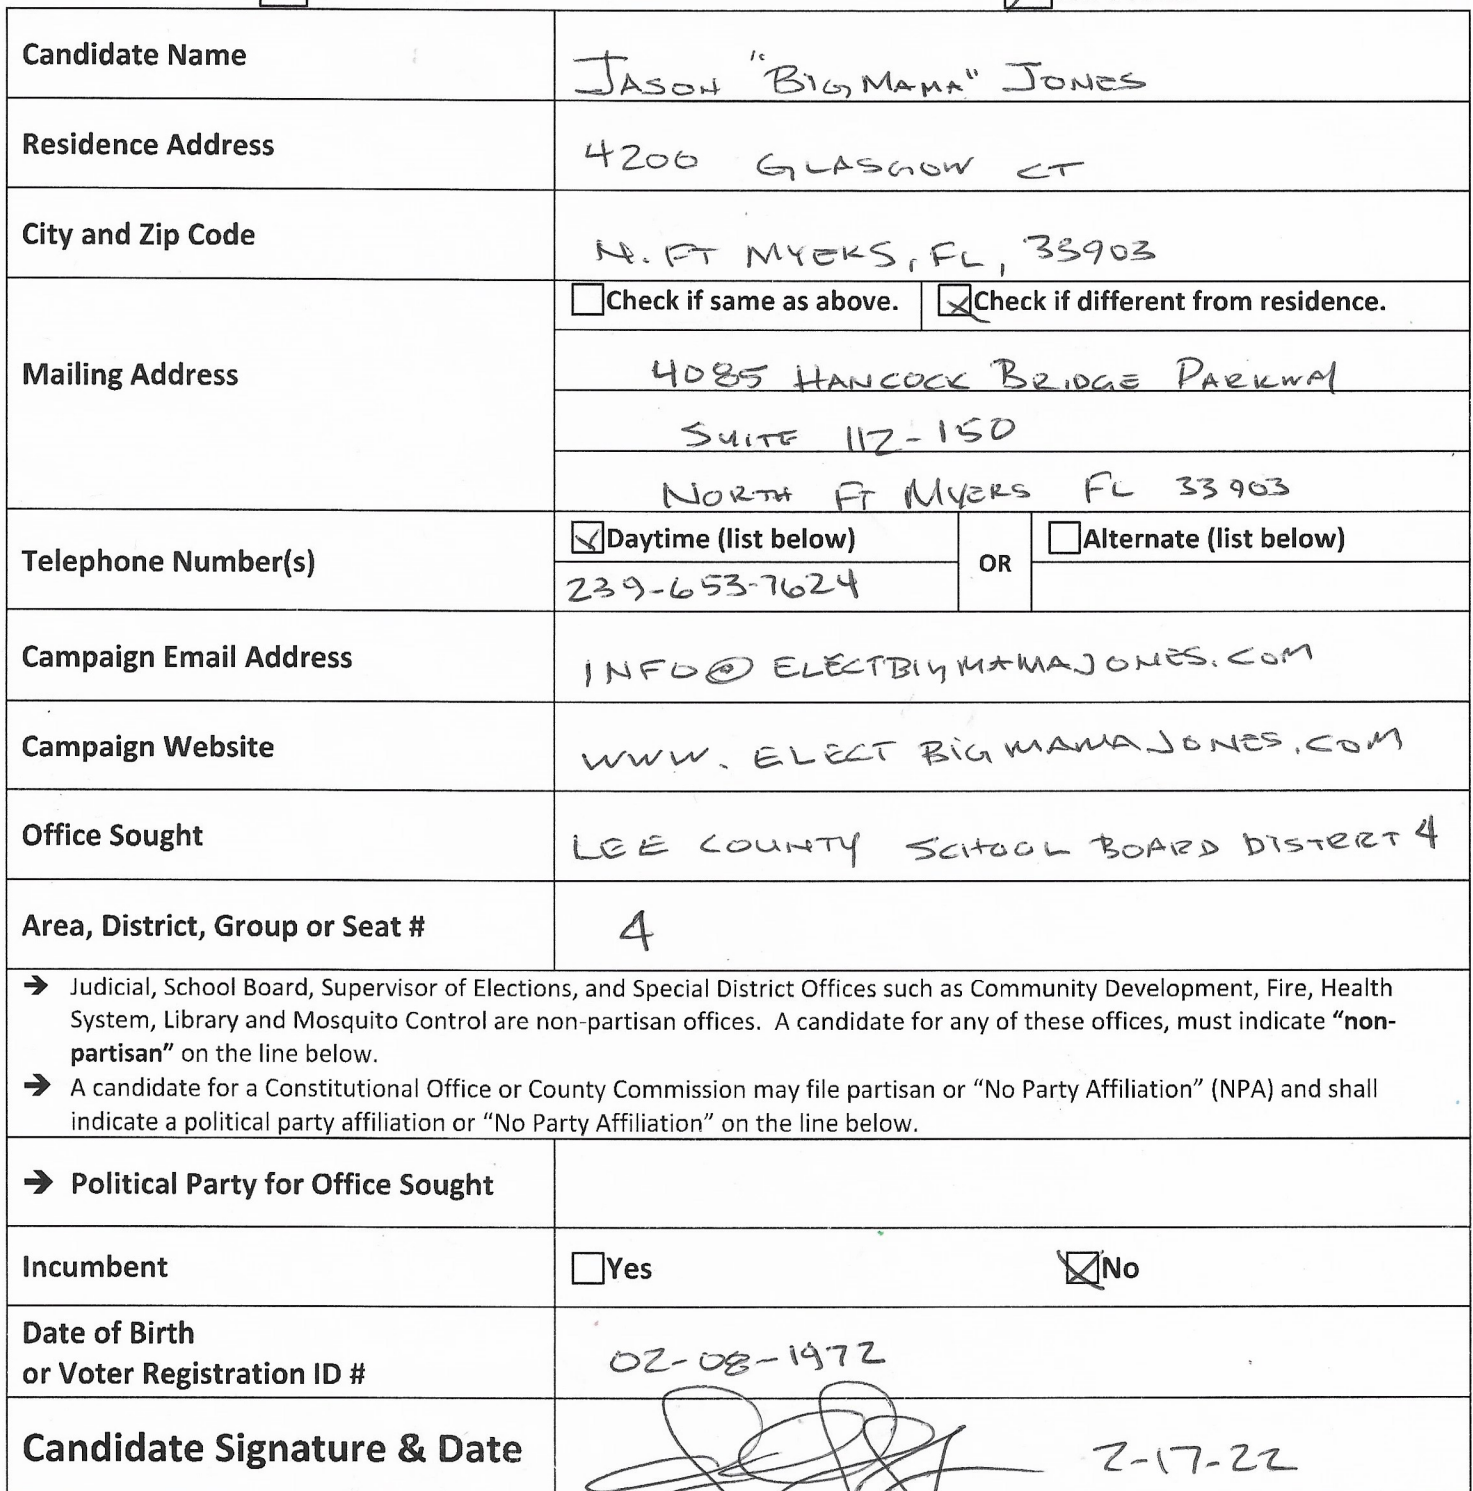 Candidate Name
JASON "BIG MAMA" JONES
Residence Address
4200 GLASGOW CT
City and Zip Code
N. FT MYERS, FL, 33903
☐Check if same as above. ☒Check if different from residence.
Mailing Address
4085 HANCOCK BRIDGE PARKWAY
SUITE 112-150
NORTH FT MYERS FL 33903
Telephone Number(s)
☒Daytime (list below) OR ☐Alternate (list below)
239-653-7624
Campaign Email Address
INFO@ELECTBIGMAMAJONES.COM
Campaign Website
WWW.ELECTBIGMAMAJONES.COM
Office Sought
LEE COUNTY SCHOOL BOARD DISTRICT 4
Area, District, Group or Seat #
4
➔ Judicial, School Board, Supervisor of Elections, and Special District Offices such as Community Development, Fire, Health
System, Library and Mosquito Control are non-partisan offices. A candidate for any of these offices, must indicate "non-
partisan" on the line below.
➔ A candidate for a Constitutional Office or County Commission may file partisan or "No Party Affiliation" (NPA) and shall
indicate a political party affiliation or "No Party Affiliation" on the line below.
➔ Political Party for Office Sought
Incumbent
☐Yes ☒No
Date of Birth
or Voter Registration ID #
02-08-1972
Candidate Signature & Date
2-17-22